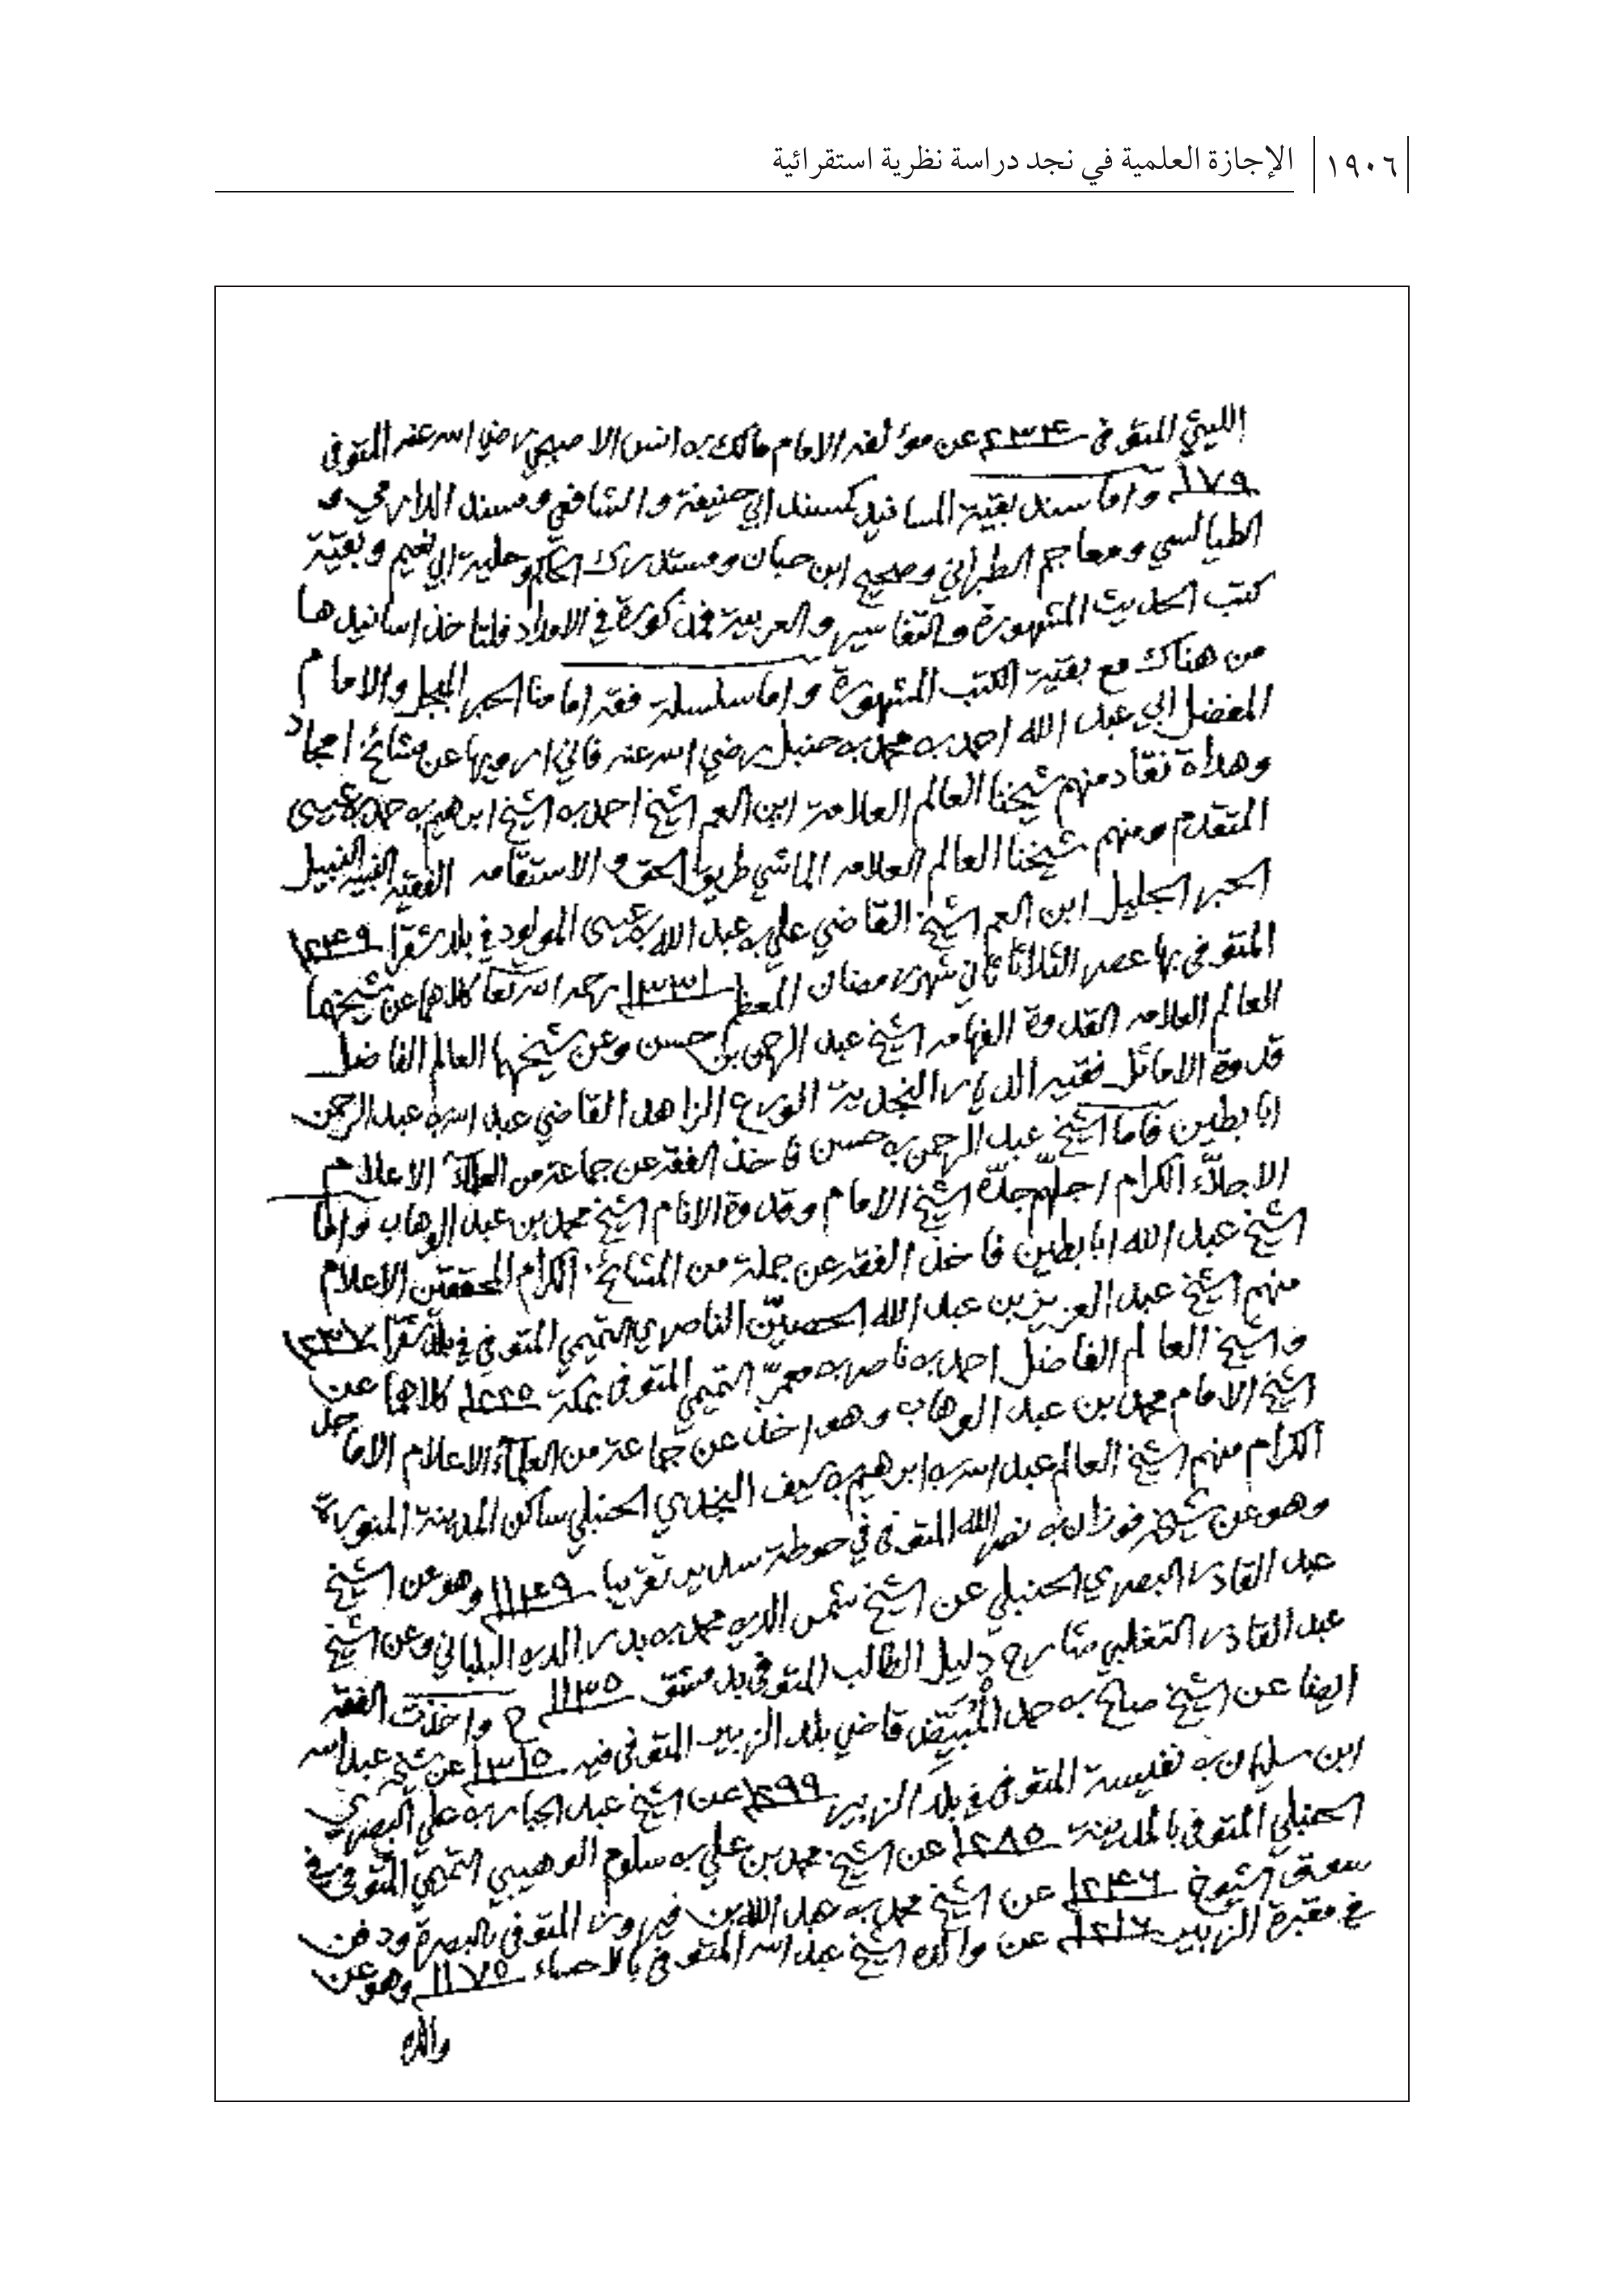 ١٩٠٦ الإجازة العلمية في نجد دراسة نظرية استقرائية
الليثي المتوفى ٢٣٤ عن مؤلفه الامام مالك بن انس الاصبحي رضي الله عنه المتوفى
١٧٩ واما سند بقية المسانيد كمسند ابي حنيفة والشافعي ومسند الدارمي و
الطيالسي ومعاجم الطبراني وصحيح ابن حبان ومستدرك الحاكم وحلية ابي نعيم وبقية
كتب الحديث المشهورة والتفاسير والعربية فمذكورة في الامداد فلتأخذ اسانيدها
من هناك مع بقية الكتب المشهورة واما سلسلة فقه امامنا الحبر المبجل والامام
المفضل ابي عبد الله احمد بن محمد بن حنبل رضي الله عنه فاني ارويها عن مشائخ امجاد
وهداة نقاد منهم شيخنا العالم العلامة ابن العم الشيخ احمد بن الشيخ ابرهيم بن حمد بن عيسى
المتقدم ومنهم شيخنا العالم العلامه الماشي طريق الحق والاستقامه الفقيه النبيه النبيل
الحبر الجليل ابن العم الشيخ القاضي علي بن عبد الله بن عيسى المولود في بلد شقرا ١٢٤٩
المتوفى بها عصر الثلاثا ثاني شهر رمضان المعظم ١٣٣١ رحمه الله تعا كلاهما عن شيخهما
العالم العلامه القدوة الفهامه الشيخ عبد الرحمن بن حسن وعن شيخهما العالم الفاضل
قدوة الاماثل فقيه الديار النجدية الورع الزاهد القاضي عبد الله بن عبد الرحمن
ابا بطين فاما الشيخ عبد الرحمن بن حسن فاخذ الفقه عن جماعة من العلماء الاعلام
الاجلاء الكرام اجلهم جده الشيخ الامام وقدوة الانام الشيخ محمد بن عبد الوهاب واما
الشيخ عبد الله ابا بطين فاخذ الفقه عن جملة من المشائخ الكرام المحققين الاعلام
منهم الشيخ عبد العزيز بن عبد الله الحصين الناصري التميمي المتوفى في بلد شقرا ١٢٣٧
والشيخ العالم الفاضل احمد بن ناصر بن معمر التميمي المتوفى بمكة ١٢٢٥ كلاهما عن
الشيخ الامام محمد بن عبد الوهاب وهو اخذ عن جماعة من العلماء الاعلام الاماجل
الكرام منهم الشيخ العالم عبد الله بن ابرهيم بن سيف النجدي الحنبلي ساكن المدينة المنورة
وهو عن شيخه فوزان بن نصر الله المتوفى في حوطة سدير تقريبا ١١٤٩ وهو عن الشيخ
عبد القادر البصري الحنبلي عن الشيخ شمس الدين محمد بن بدر الدين البلباني وعن الشيخ
عبد القادر التغلبي شارح دليل الطالب المتوفى بدمشق ١١٣٥ ح واخذت الفقه
ايضا عن الشيخ صالح بن حمد المبيض قاضي بلد الزبير المتوفى فيه ١٣١٥ عن شيخه عبد الله
ابن سليمان بن نفيسة المتوفى في بلد الزبير ١٢٩٩ عن الشيخ عبد الجبار بن علي البصري
الحنبلي المتوفى بالمدينة ١٢٨٥ عن الشيخ محمد بن علي بن سلوم الوهيبي التميمي المتوفى في
سوق الشيوخ ١٢٤٦ عن الشيخ محمد بن عبد الله بن فيروز المتوفى بالبصرة ودفن
في مقبرة الزبير ١٢١٦ عن والده الشيخ عبد الله المتوفى بالاحساء ١١٧٥ وهو عن
والده